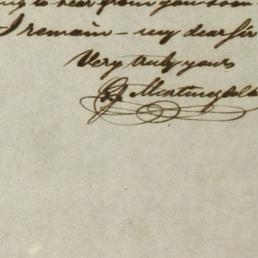 to hear from you soon
I remain - my dear sir
Very truly yours